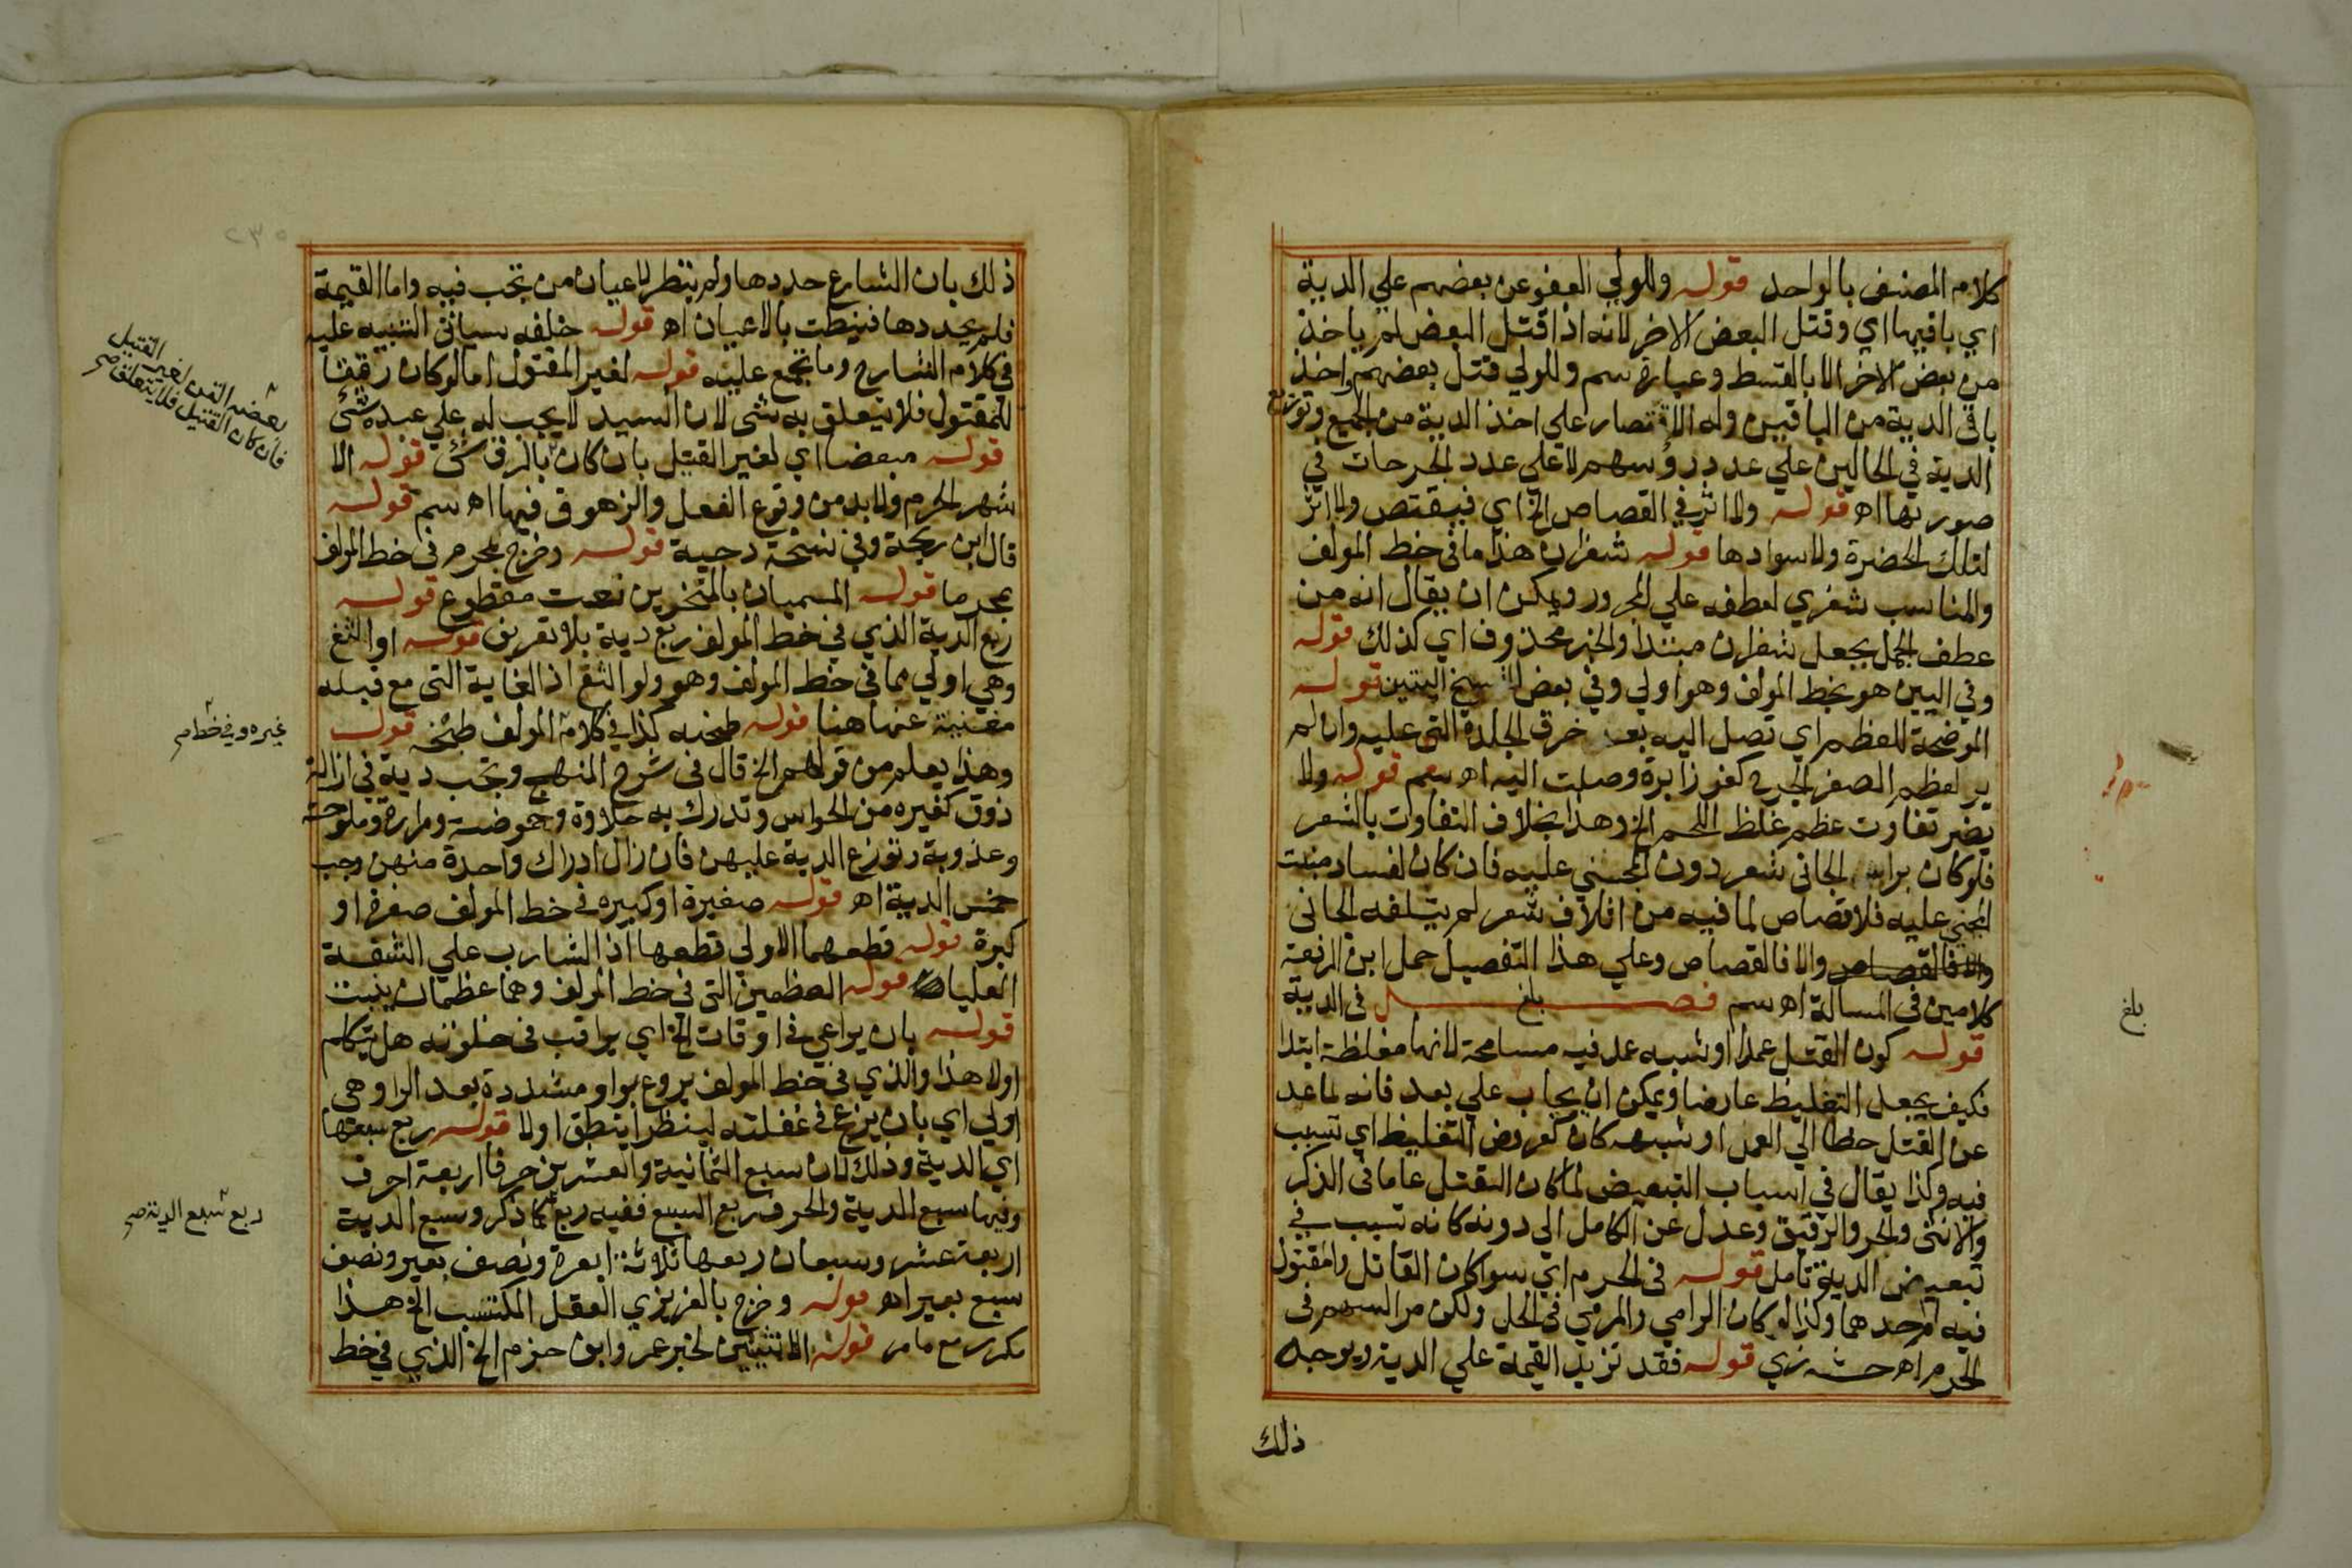 كلام المصنف بالواحد قوله وللولي العفو عن بعضهم علي الدية
اي باقيها اي وقتل البعض الاخر لانه اذا قتل البعض لم ياخذ
من بعض الاخر الا بالقسط وعبارة سم وللولي قتل بعضهم واخذ
باقي الدية من الباقين وله الاقتصار علي اخذ الدية من الجميع وتوزيع
الدية في الحالين علي عدد رؤسهم لا علي عدد الجرحات في
صورتها اه قوله ولا اثر في القصاص الخ اي فيقتص ولا اثر
لتلك الخضرة ولا سوادها قوله شفران هذا ما في خط المولف
والمناسب شفري لعطفه علي المجرور ويمكن ان يقال انه من
عطف الجمل بجعل شفران مبتدا والخبر محذوف اي كذلك قوله
وفي اليين هو بخط المولف وهو اولي وفي بعض النسخ اليتين قوله
الموضحة للعظم اي تصل اليه بعد خرق الجلدة التي عليه وان لم
ير لعظم الصغر الجرح كغرز ابرة وصلت اليه اه سم قوله ولا
يضر تفاوت عظم غلظ اللحم الخ وهذا بخلاف التفاوت بالشعر
فلو كان براس الجاني شعر دون المجني عليه فان كان لفساد منبت
المجني عليه فلا قصاص لما فيه من اتلاف شعر لم يتلفه الجاني
والا فالقصاص والا فالقصاص وعلي هذا التفصيل حمل ابن الرفعة
كلامين في المسالة اه سم فصل بلغ في الدية
قوله كون القتل عمدا او شبه عمد فيه مسامحة لانها مغلظة ابتدا
فكيف يجعل التغليظ عارضا ويمكن ان يجاب علي بعد فانه لما عد
عن القتل خطا الي العمد او شبهه كان كعروض التغليظ اي تسبب
فيه وكذا يقال في اسباب التبعيض لما كان القتل عاما في الذكر
والانثي والحر والرقيق وعدل عن الكامل الي دونه كانه تسبب في
تبعيض الدية تامل قوله في الحرم اي سوا كان القاتل والمقتول
فيه ام احدهما وكذا لو كان الرامي والمرمي في الحل ولكن مر السهم في
الحرم اه حشه زي قوله فقد تزيد القيمة علي الدية ويوجه
ذلك
بلغ
٢٣٥
ذلك بان الشارع حددها ولم ينظر لاعيان من تجب فيه واما القيمة
فلم يحددها فنيطت بالاعيان اه قوله خلفه سياتي التنبيه عليه
في كلام الشارح وما تجمع علينه قوله لغير المقتول اما لو كان رقيقا
للمقتول فلا يتعلق به شي لان السيد لا يجب له علي عبده شئ
قوله مبعضا اي لغير القتيل بان كان بالرق شئ قوله الا
شهر الحرم ولا بد من وقوع الفعل والزهوق فيها اه سم قوله
قال ابن دحية وفي نسخة دحيية قوله وخرج بمحرم في خط المولف
بمحرما قوله المسميان بالمنخرين نعت مقطوع قوله
ربع الدية الذي في خط المولف ربع دية بلا تعريف قوله او الثغ
وهي اولي مما في خط المولف وهو ولو الثغ اذ الغاية التي مع قبله
مغنية عنها هنا قوله طحنه كذا في كلام المولف طبخه قوله
وهذا يعلم من قولهم الخ قال في شرح المنهج وتجب دية في ازالة
ذوق كغيره من الحواس وتدرك به حلاوة وحموضة ومرارة وملوحة
وعذوبة وتوزع الدية عليهن فان زال ادراك واحدة منهن وجب
خمس الدية اه قوله صغيرة او كبيره في خط المولف صغرة او
كبرة قوله قطعهما الاولي قطعها اذ الشارب علي الشفة
العليا قوله العظمين التي في خط المولف وهما عظمان ينبت
قوله بان يراعي في اوقات الخ اي يراقب في خلوته هل يتكلم
اولا هذا والذي في خط المولف يروع بواو مشددة بعد الرا وهي
اولي اي بان يزع في غفلته لينظر اينطق اولا قوله ربع سبعها
اي الدية وذلك لان سبع الثمانية والعشرين حرفا اربعة احرف
وفيها سبع الدية والحرف ربع السبع ففيه ربع كما ذكر وسبع الدية
اربعة عشر وسبعان ربعها ثلاثة ابعرة ونصف بعير ونصف
سبع بعير اه قوله وخرج بالغريزي العقل المكتسب الخ هذا
مكرر مع ما مر قوله الانثيين لخبر عمر وابن حزم الخ الذي في خط
بعضه القن لغير القتيل
فان كان القتيل فلا يتعلق صح
غيره وفي خط م
ربع سبع الدية صح